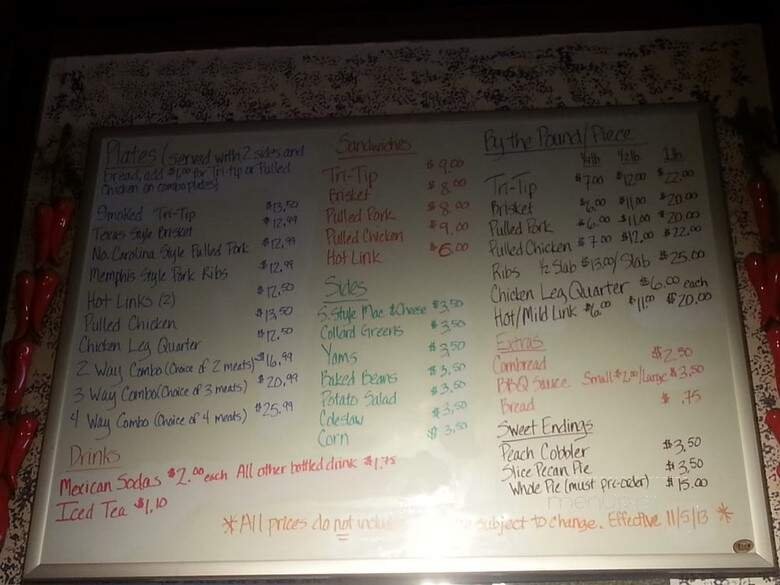 Plates (served with 2 sides and
bread, add $1.00 for Tri-tip or Pulled
Chicken on combo plates)
Smoked Tri-Tip $13.50
Texas Style Brisket $12.99
No. Carolina Style Pulled Pork $12.99
Memphis Style Pork Ribs $12.99
Hot Links (2) $12.50
Pulled Chicken $13.50
Chicken Leg Quarter $12.50
2 Way Combo (Choice of 2 meats) $16.99
3 Way Combo (Choice of 3 meats) $20.99
4 Way Combo (Choice of 4 meats) $25.99
Drinks
Mexican Sodas $2.00 each All other bottled drink $1.75
Iced Tea $1.10
Sandwiches
Tri-Tip $9.00
Brisket $8.00
Pulled Pork $8.00
Pulled Chicken $9.00
Hot Link $6.00
Sides
S. Style Mac & Cheese $3.50
Collard Greens $3.50
Yams $3.50
Baked Beans $3.50
Potato Salad $3.50
Coleslaw $3.50
Corn $3.50
By the Pound/Piece
1/4 lb 1/2 lb 1 lb
Tri-Tip $7.00 $12.00 $22.00
Brisket $6.00 $11.00 $20.00
Pulled Pork $6.00 $11.00 $20.00
Pulled Chicken $7.00 $12.00 $22.00
Ribs 1/2 Slab $13.00/Slab $25.00
Chicken Leg Quarter $6.00 each
Hot/Mild Link $6.00 $11.00 $20.00
Extras
Cornbread $2.50
BBQ Sauce Small $2.00/Large $3.50
Bread $.75
Sweet Endings
Peach Cobbler $3.50
Slice Pecan Pie $3.50
Whole Pie (must pre-order) $15.00
*All prices do not subject to change. Effective 11/5/13 *